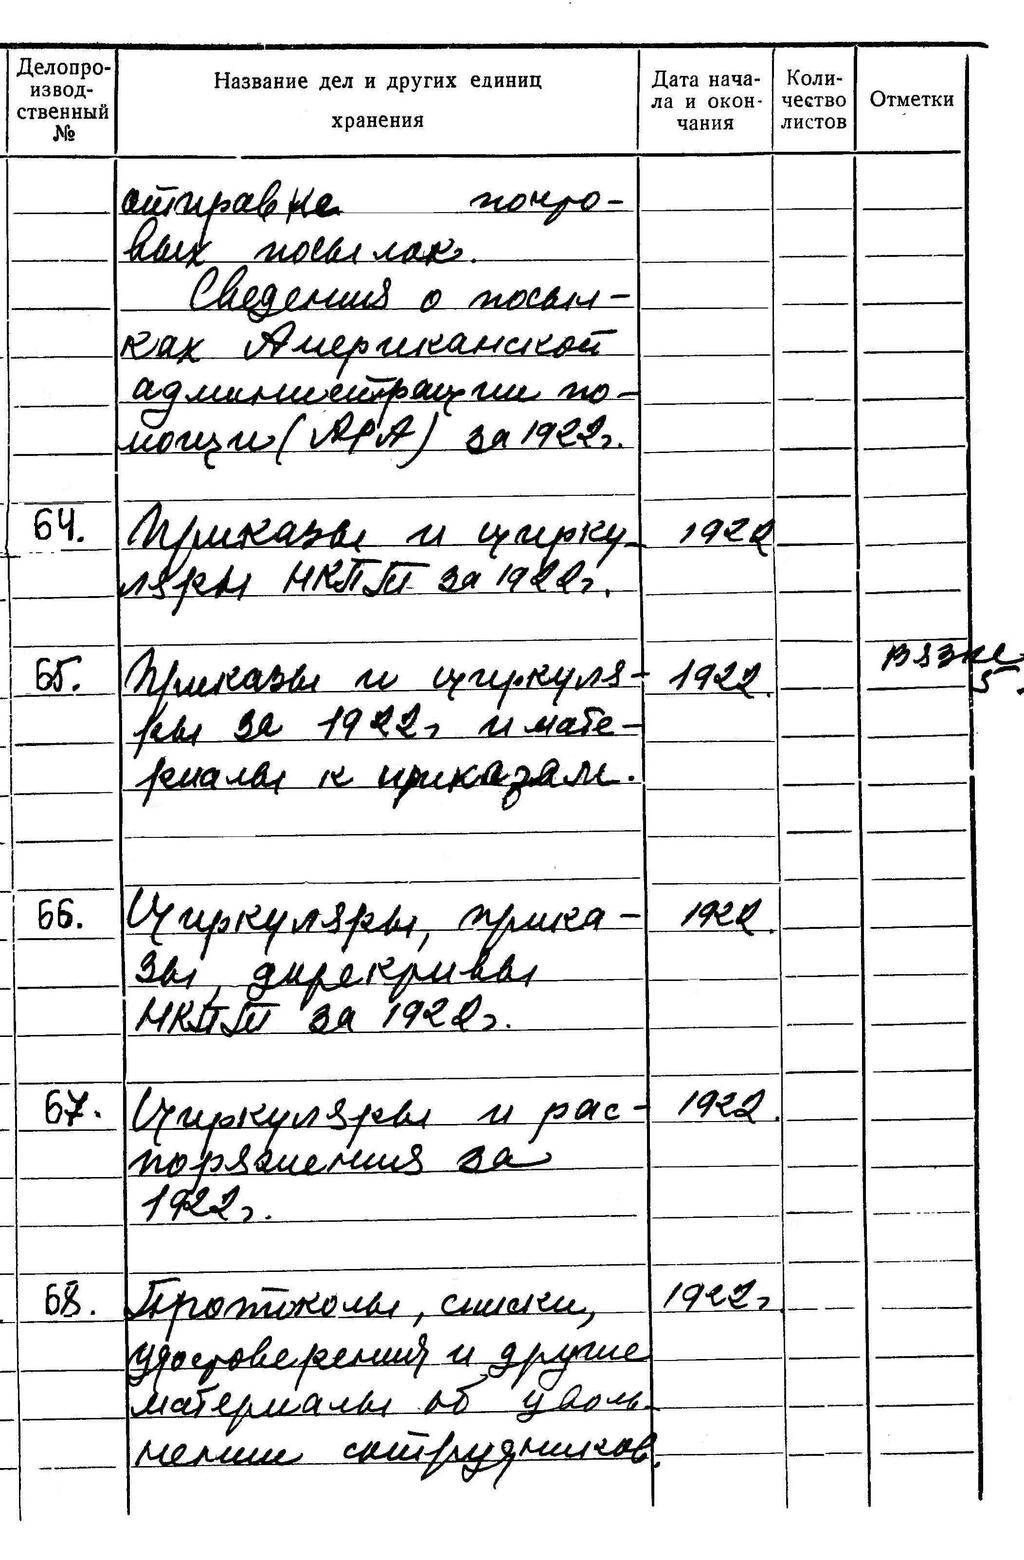 Делопро-
извод-
ственный
№
Название дел и других единиц
хранения
Дата нача-
ла и окон-
чания
Коли-
чество
листов
Отметки
отправке
вых посылок.
Сведения о посыл-
ках Американской
администрации по-
мощи (АРА) за 1922г.
64. Приказы и цирку- 1922
ляры НКПТ за 1922г.
65. Приказы и циркуля- 1922.
ры за 1922г и мате-
риалы к приказам.
66. Циркуляры, прика- 1922.
зы, директивы
НКПТ за 1922г.
67. Циркуляры и рас- 1922.
поряжения за
1922г.
68. Протоколы, списки, 1922г
удостоверения и другие
материалы об уволь-
нении сотрудников.